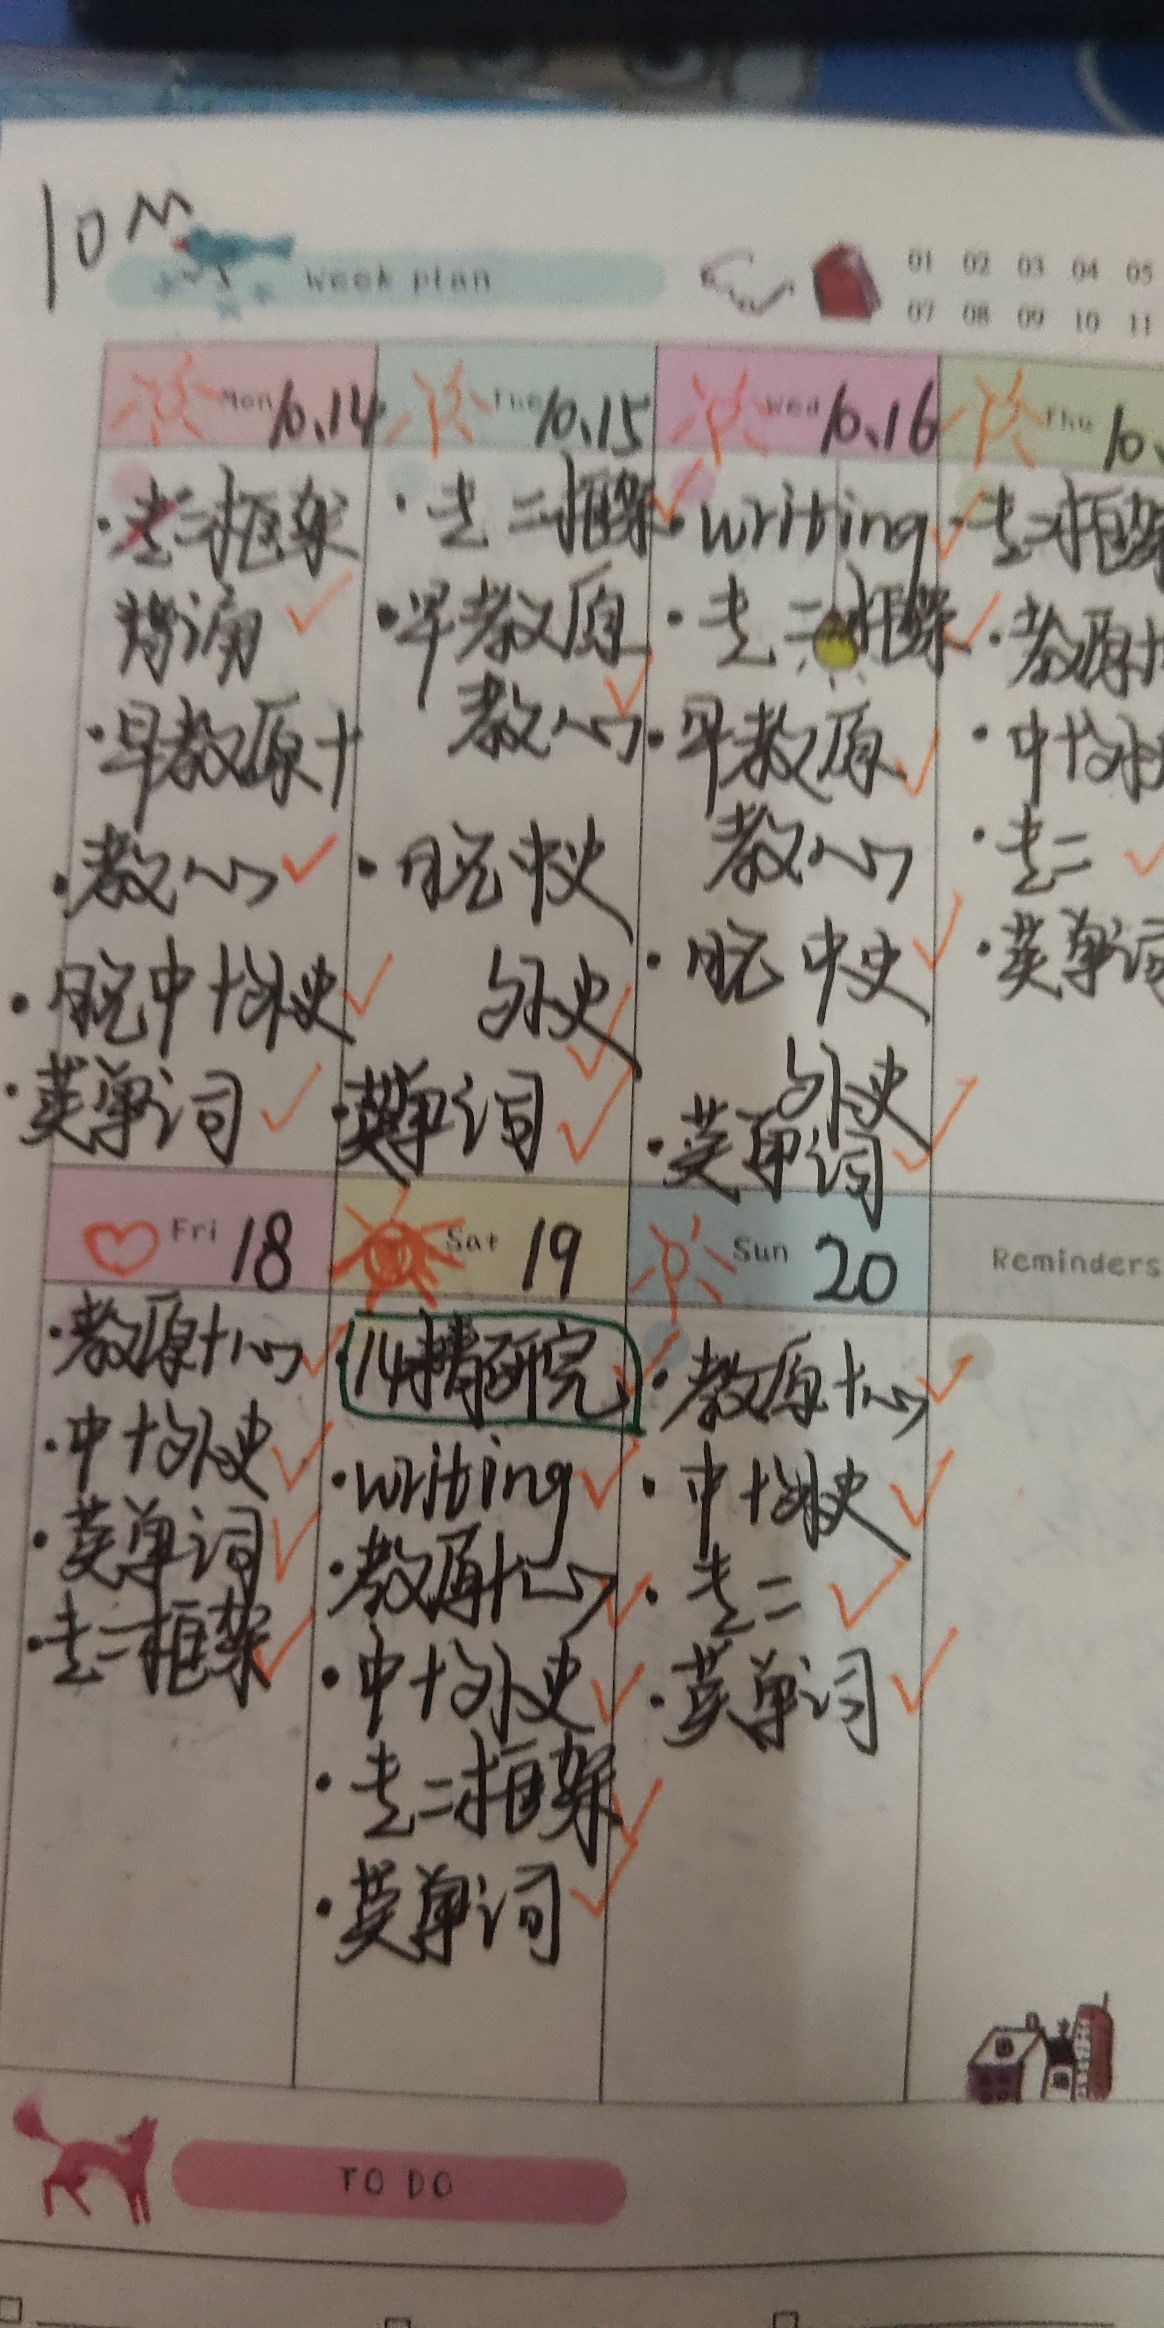 10M
Week plan
01 02 03 04 05
07 08 09 10 11
Mon 10.14
·专二框架
背诵
·早教原+
·教心
·晚中+外史
·英单词
Tue 10.15
·专二框架
·早教原
教心
·晚中史
外史
·英单词
Wed 10.16
·writing
·专二框架
·早教原
教心
·晚中史
外史
·英单词
Thu 10.
·专二框架
·教原+
·中+外
·专二
·英单词
Fri 18
·教原+心
·中+外史
·英单词
·专二框架
Sat 19
·14情研究
·writing
·教原+心
·中+外史
·专二框架
·英单词
Sun 20
·教原+心
·中+外史
·专二
·英单词
Reminders
TO DO